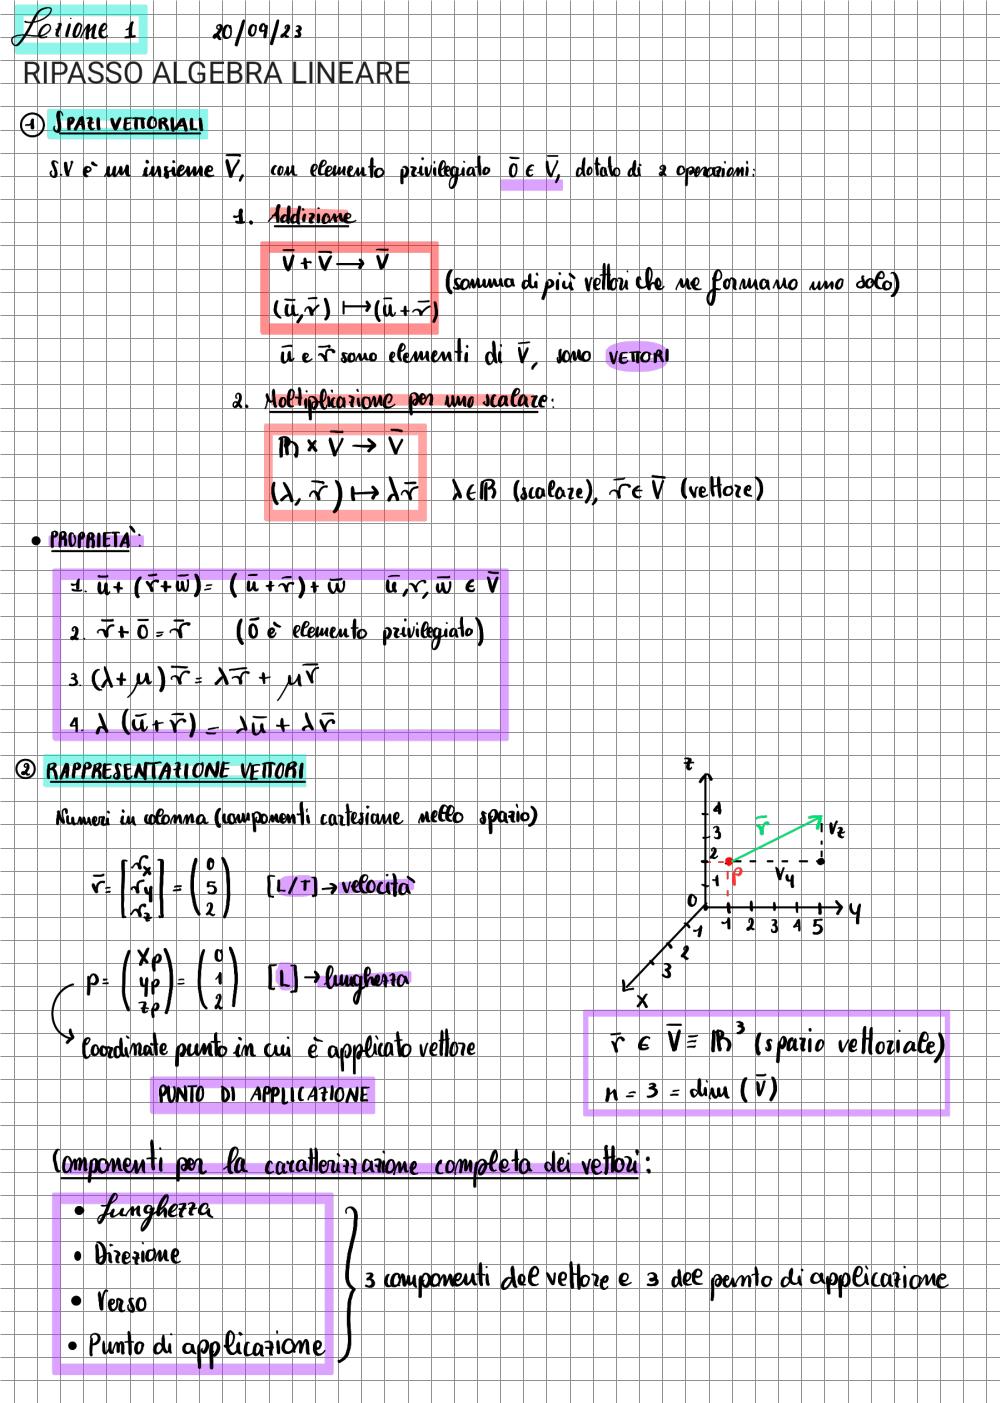 Lezione 1 20/09/23
RIPASSO ALGEBRA LINEARE
① SPAZI VETTORIALI
S.V è un insieme V̄, con elemento privilegiato ō ∈ V̄, dotato di 2 operazioni:
1. Addizione
V̄ + V̄ → V̄
(somma di più vettori che ne formano uno solo)
(ū, v̄) ↦ (ū + v̄)
ū e v̄ sono elementi di V̄, sono VETTORI
2. Moltiplicazione per uno scalare:
ℝ × V̄ → V̄
(λ, v̄) ↦ λv̄ λ∈ℝ (scalare), v̄ ∈ V̄ (vettore)
• PROPRIETÀ:
1. ū + (v̄ + w̄) = (ū + v̄) + w̄ ū, v, w̄ ∈ V̄
2. v̄ + ō = v̄ (ō è elemento privilegiato)
3. (λ + μ) v̄ = λv̄ + μv̄
4. λ (ū + v̄) = λū + λv̄
② RAPPRESENTAZIONE VETTORI
Numeri in colonna (componenti cartesiane nello spazio)
v̄ = [vx vy vz] = (0 5 2) [L/T] → velocità
P = (xp yp zp) = (0 1 2) [L] → lunghezza
Coordinate punto in cui è applicato vettore
PUNTO DI APPLICAZIONE
z
4
3
2
1
0
v̄
Vz
P
Vy
1 2 3 4 5 y
1
2
3
x
v̄ ∈ V̄ ≡ ℝ³ (spazio vettoriale)
n = 3 = dim (V̄)
Componenti per la caratterizzazione completa dei vettori:
• Lunghezza
• Direzione
3 componenti del vettore e 3 del punto di applicazione
• Verso
• Punto di applicazione